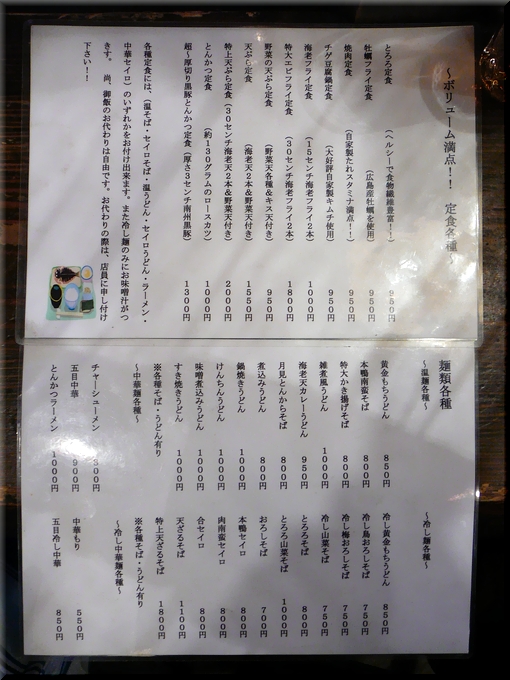 ～ボリューム満点！！　定食各種～
とろろ定食　（ヘルシーで食物繊維豊富！！）　９５０円
牡蠣フライ定食　（広島産牡蠣を使用）　９５０円
焼肉定食　（自家製たれスタミナ満点！！）　９５０円
チゲ豆腐鍋定食　（大好評自家製キムチ使用）　９５０円
海老フライ定食　（１５センチ海老フライ２本）　１０００円
特大エビフライ定食　（３０センチ海老フライ２本）　１８００円
野菜の天ぷら定食　（野菜天各種＆キス天付き）　９５０円
天ぷら定食　（海老天２本＆野菜天付き）　１５５０円
特上天ぷら定食　（３０センチ海老天２本＆野菜天付き）　２０００円
とんかつ定食　（約１３０グラムのロースカツ）　１０００円
超～厚切り黒豚とんかつ定食　（厚さ３センチ南州黒豚）　１３００円
各種定食には、（温そば・セイロそば・温うどん・セイロうどん・ラーメン・
中華セイロ）のいずれかをお付け出来ます。また冷し麺のみにお味噌汁がつ
きます。尚、御飯のお代わりは自由です。お代わりの際は、店員に申し付け
下さい！！
麺類各種
～温麺各種～
黄金もちうどん　８５０円
本鴨南蛮そば　８００円
特大かき揚げそば　８００円
雑煮風うどん　１０００円
海老天カレーうどん　９５０円
月見とんからそば　８００円
煮込みうどん　８００円
鍋焼きうどん　１０００円
けんちんうどん　１０００円
味噌煮込みうどん　１０００円
すき焼きうどん　１０００円
※各種そば・うどん有り
～中華麺各種～
チャーシューメン
五目中華　９００円
とんかつラーメン　１０００円
～冷し麺各種～
冷し黄金もちうどん　８５０円
冷し鳥おろしそば　７５０円
冷し梅おろしそば　７５０円
冷し山菜そば　７５０円
とろろそば　８００円
とろろ山菜そば　１０００円
おろしそば　７００円
本鴨セイロ　８００円
肉南蛮セイロ　８００円
合セイロ　８００円
天ざるそば　１１００円
特上天ざるそば　１８００円
※各種そば・うどん有り
～冷し中華麺各種～
中華もり　５５０円
五目冷し中華　８５０円